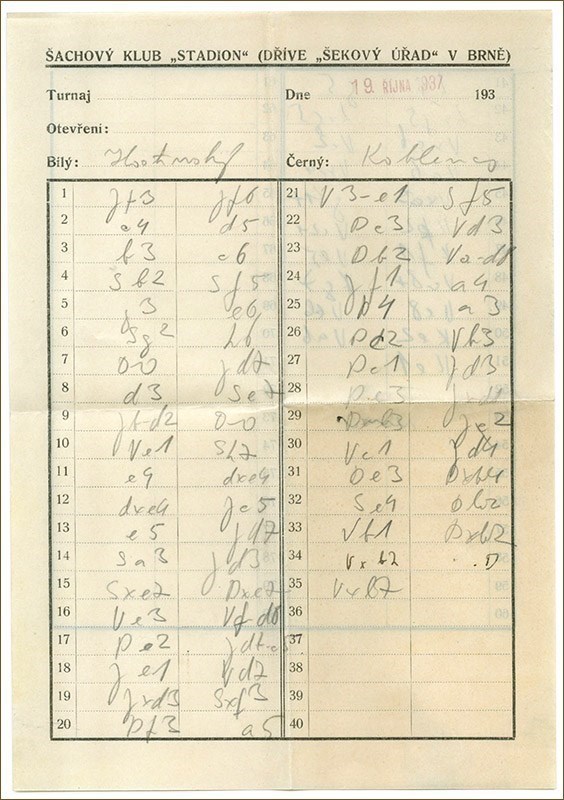 ŠACHOVÝ KLUB „STADION" (DŘÍVE „ŠEKOVÝ ÚŘAD" V BRNĚ)
Turnaj Dne 19. ŘÍJNA 1937 193
Otevření:
Bílý: Černý:
1 Jf3 Jf6 21 V3-e1 Sf5
2 c4 d5 22 Dc3 Vd3
3 b3 c6 23 Db2 Va-d8
4 Sb2 Sf5 24 Jf1 a4
5 g3 e6 25 a3
6 Sg2 h6 26 Vb3
7 0-0 Jd7 27 Dc1 Jd3
8 d3 Se7 28
9 Jb-d2 0-0 29
10 Ve1 Sh7 30 Vc1 Jd4
11 e4 dxe4 31 De3 Dxb4
12 dxe4 Jc5 32 Se4
13 e5 Jd7 33 Vb1 Dxb2
14 Sa3 Jd3 34 Vxb2
15 Sxe7 Dxe7 35 Vxb7
16 Ve3 Vf-d8 36
17 De2 37
18 Je1 Vd7 38
19 Jxd3 Sxf3 39
20 Df3 a5 40